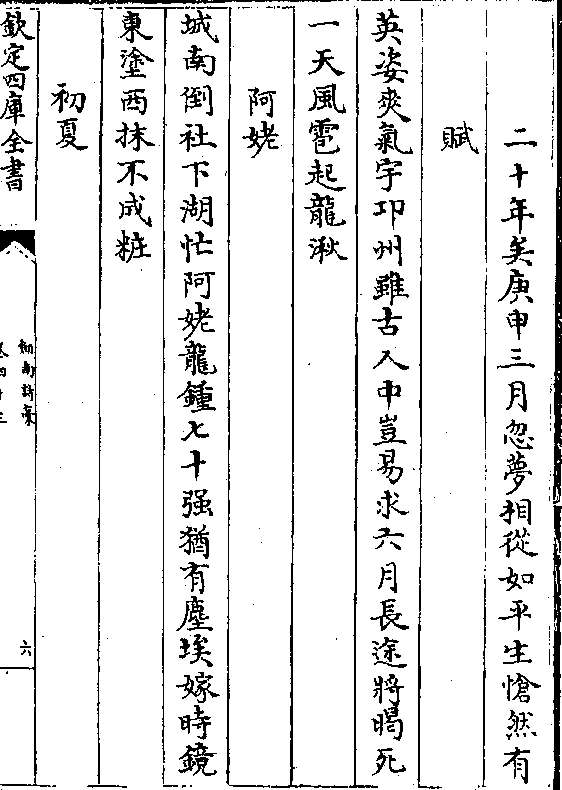 二十年矣庚申三月忽夢相從如平生愴然有
賦
英姿爽氣宇卭州雖古人中豈易求六月長途將暍死
一天風雹起龍湫
阿姥
城南倒社下湖忙阿姥龍鍾七十强猶有塵埃嫁時鏡
東塗西抹不成粧
初夏
欽定四庫全書
劍南詩稾
卷四十三
六